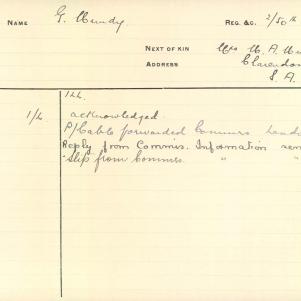 NAME G. Hundy. REG. &C. 2/50th
NEXT OF KIN Mrs H. A. Hu
ADDRESS Clarendon
S. A.
Ill.
1/4 acknowledged
P/Cable forwarded Commrs Lond
Reply from Commis. Information ren
Slip from Commis. " "